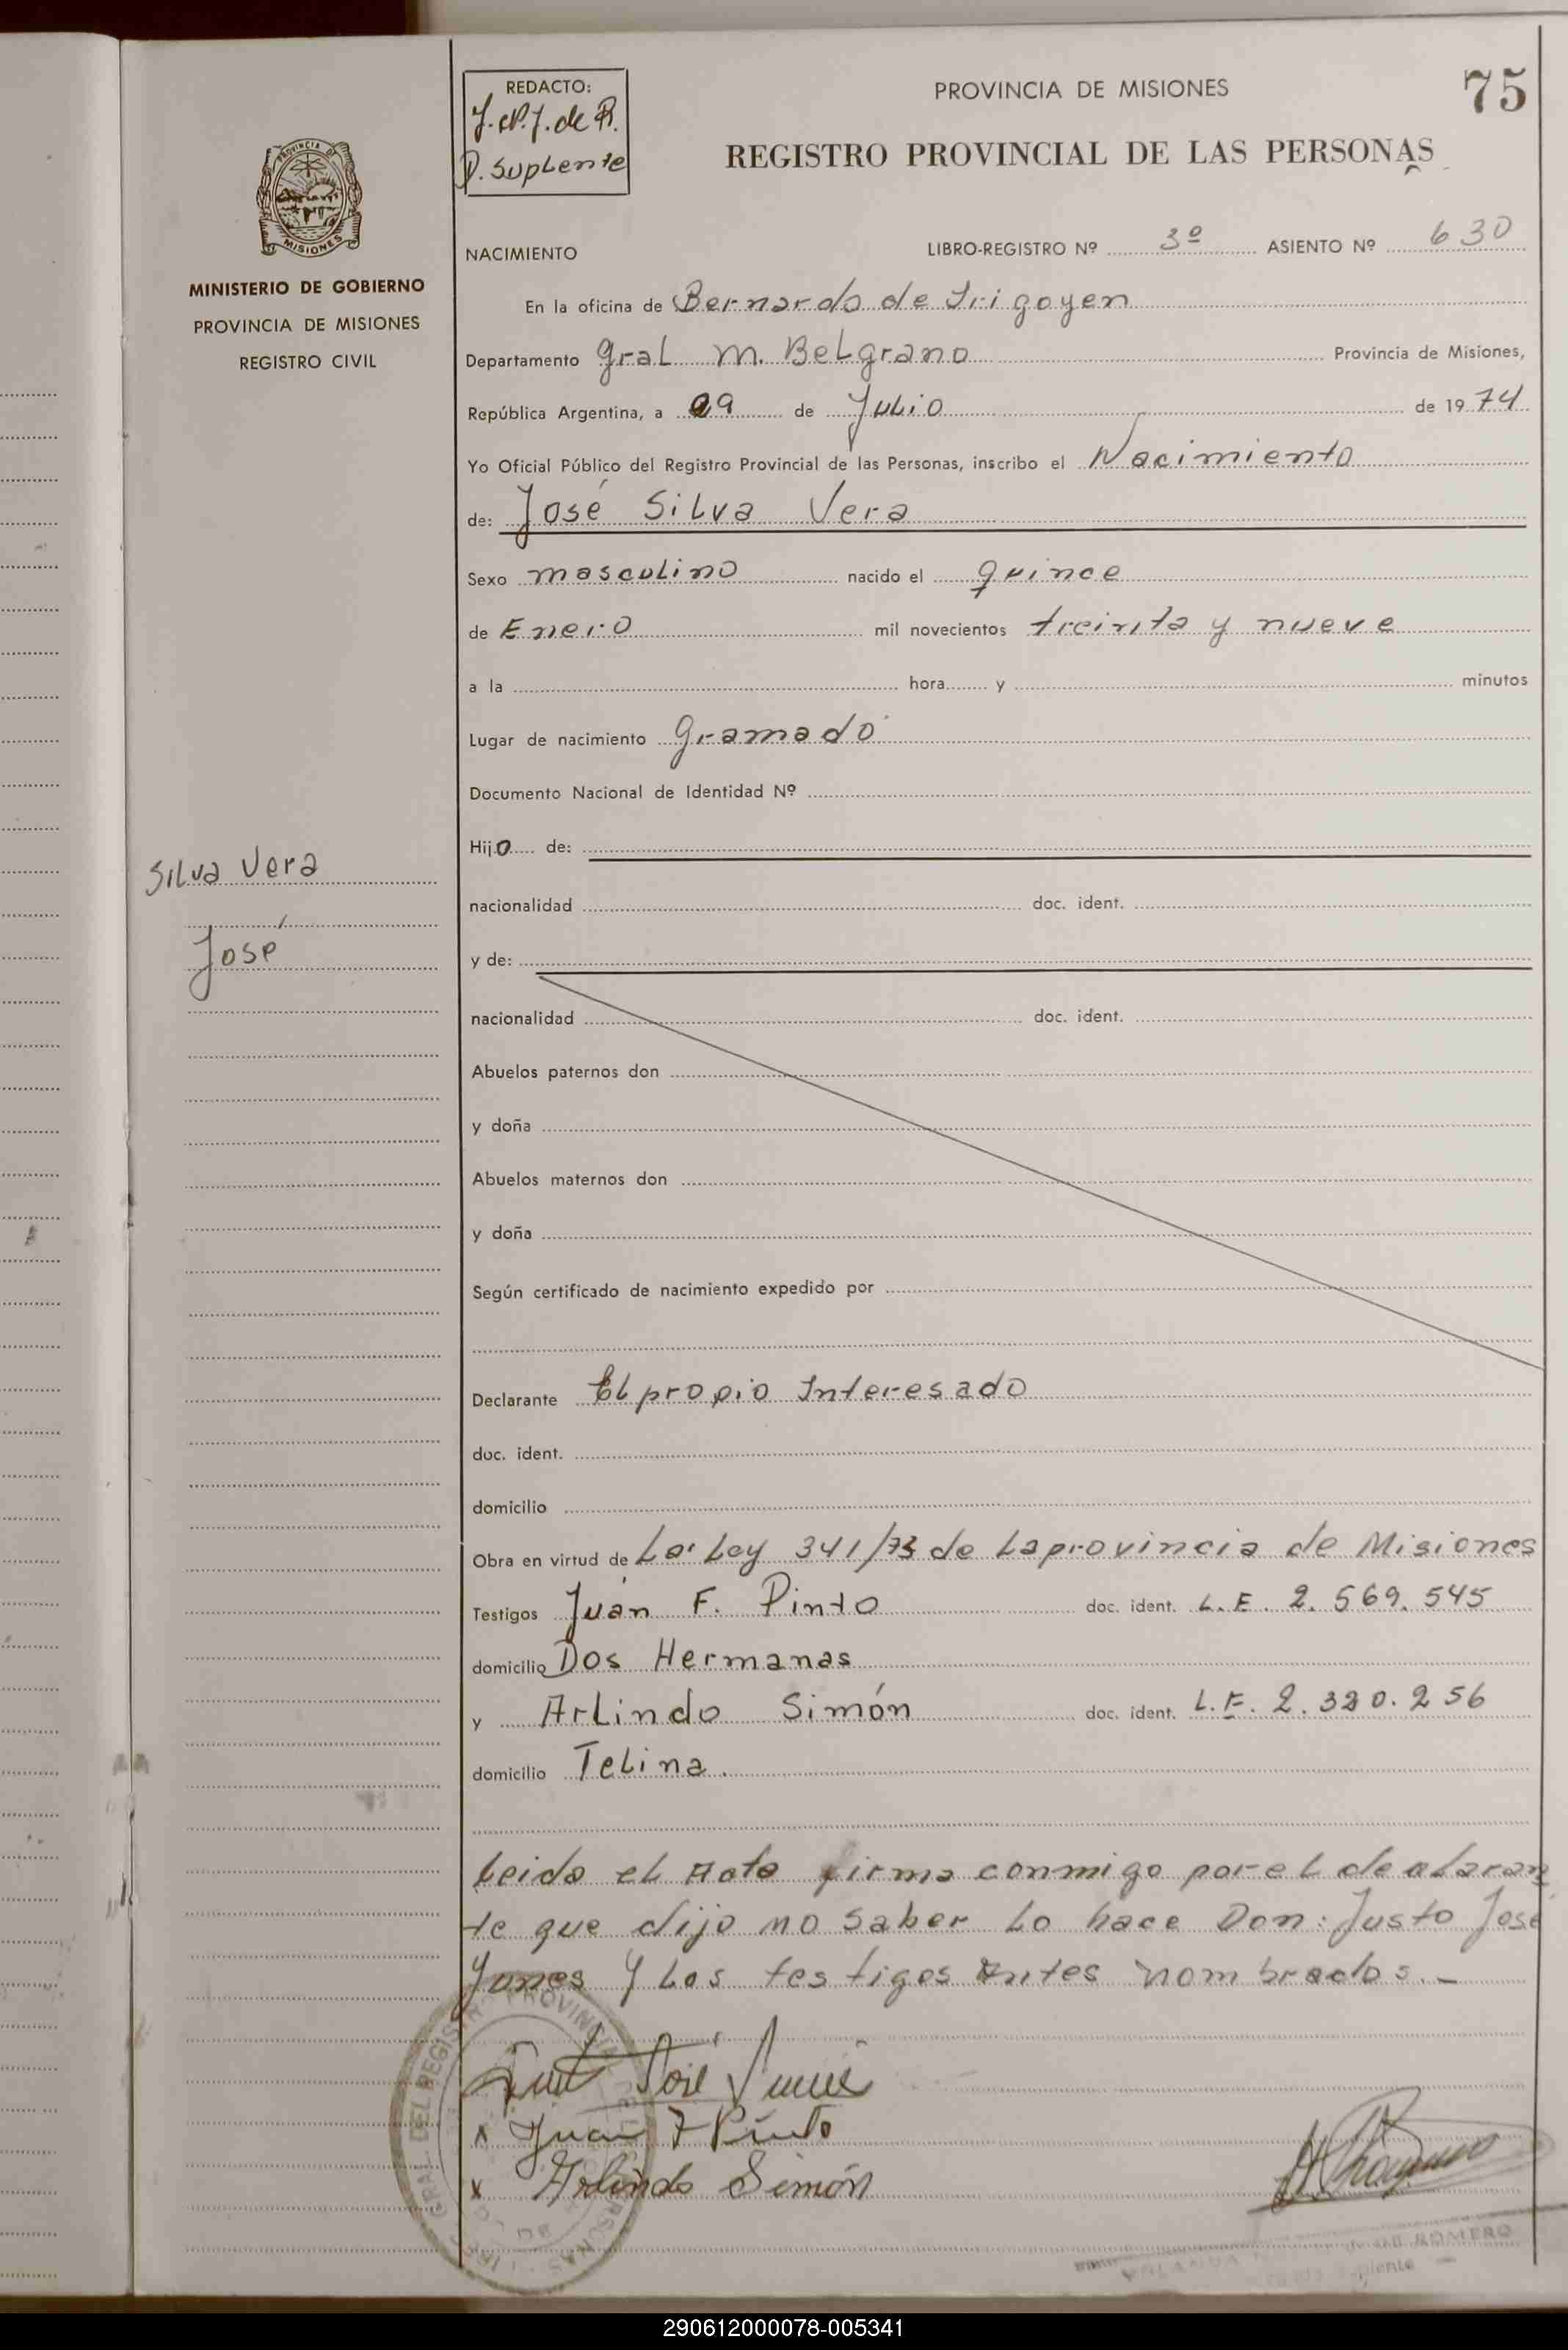 75
REDACTO:
J. P. J. de R.
D. Suplente
PROVINCIA DE MISIONES
REGISTRO PROVINCIAL DE LAS PERSONAS
PROVINCIA DE
MISIONES
MINISTERIO DE GOBIERNO
PROVINCIA DE MISIONES
REGISTRO CIVIL
NACIMIENTO LIBRO-REGISTRO Nº 3º ASIENTO Nº 630
En la oficina de Bernardo de Irigoyen
Departamento Gral M. Belgrano Provincia de Misiones,
República Argentina, a 29 de Julio de 1974
Yo Oficial Público del Registro Provincial de las Personas, inscribo el Nacimiento
de: José Silva Vera
Sexo masculino nacido el quince
de Enero mil novecientos treinta y nueve
a la hora y minutos
Lugar de nacimiento Gramado
Documento Nacional de Identidad Nº
Hijo de:
Silva Vera
José
nacionalidad doc. ident.
y de:
nacionalidad doc. ident.
Abuelos paternos don
y doña
Abuelos maternos don
y doña
Según certificado de nacimiento expedido por
Declarante El propio Interesado
doc. ident.
domicilio
Obra en virtud de La Ley 341/73 de La provincia de Misiones
Testigos Juan F. Pinto doc. ident. L.E. 2.569.545
domicilio Dos Hermanas
y Arlindo Simón doc. ident. L.E. 2.320.256
domicilio Telina.
Leida el Acta firma conmigo por el declaran
te que dijo no saber Lo hace Don: Justo José
Yunes y Los testigos Antes nombrados.-
José
x Juan F Pinto
x Arlindo Simón
GRAL. DEL REGISTRO PROVINCIAL
PERSONAS
ROMERO
290612000078-005341